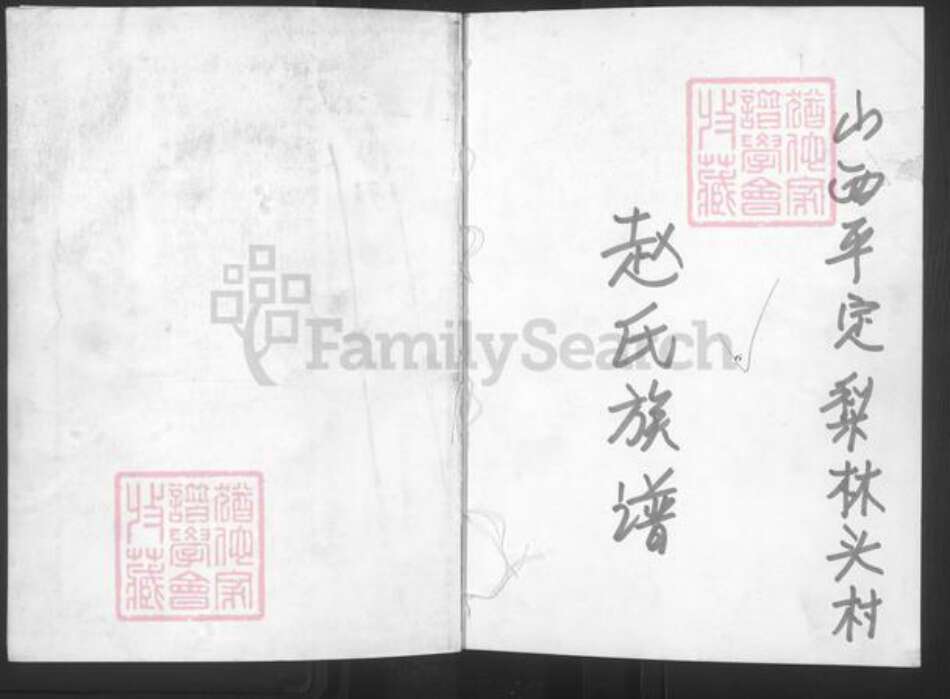 山西平定梨林头村
赵氏族谱
猶他家
譜學會
收藏
FamilySearch
猶他家
譜學會
收藏